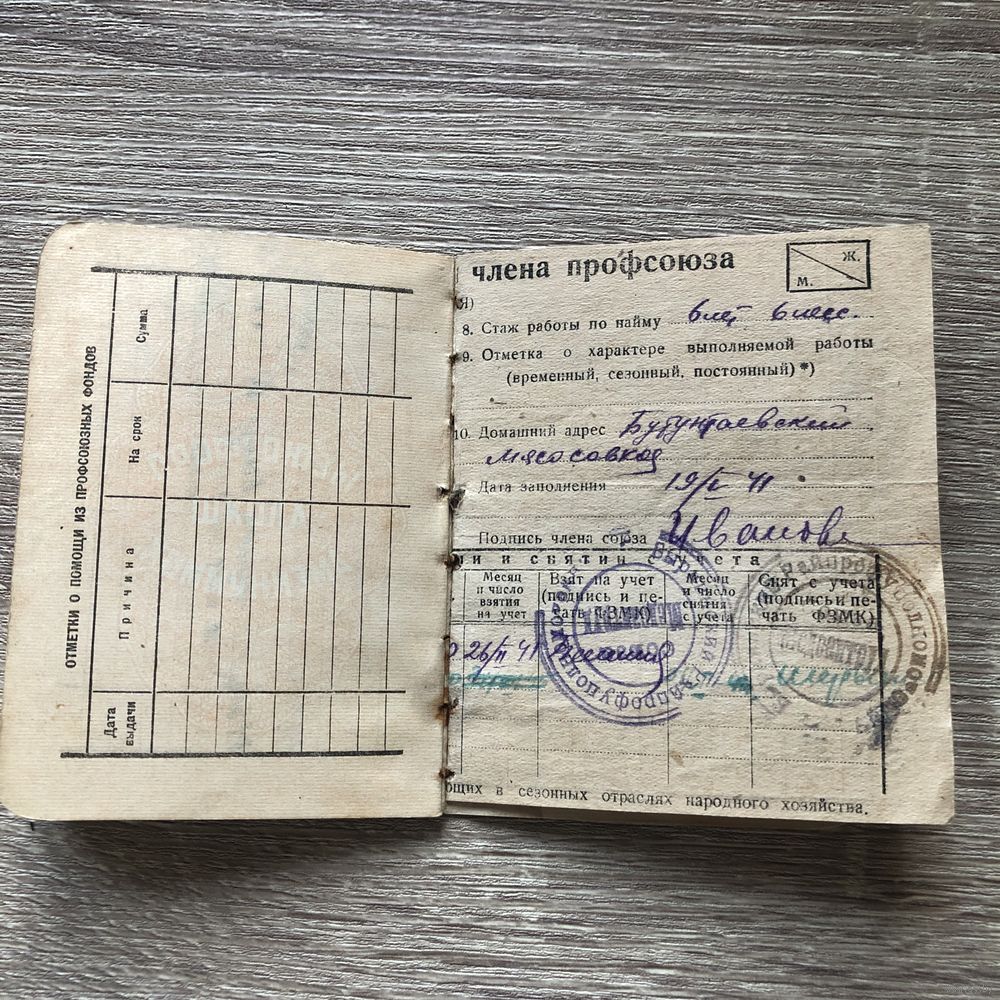 ОТМЕТКИ О ПОМОЩИ ИЗ ПРОФСОЮЗНЫХ ФОНДОВ
Дата выдачи
Причина
На срок
Сумма
члена профсоюза
м. ж.
Я)
8. Стаж работы по найму 6 лет 6 мес.
9. Отметка о характере выполняемой работы
(временный, сезонный, постоянный) *)
10. Домашний адрес
Мясосовхоз
Дата заполнения 19/I 41
Подпись члена союза Иванова
и и снятии с учета
Месяц и число взятия на учет
Взят на учет (подпись и печать ФЗМК)
Месяц и число снятия с учета
Снят с учета (подпись и печать ФЗМК)
26/II 41
ющих в сезонных отраслях народного хозяйства.